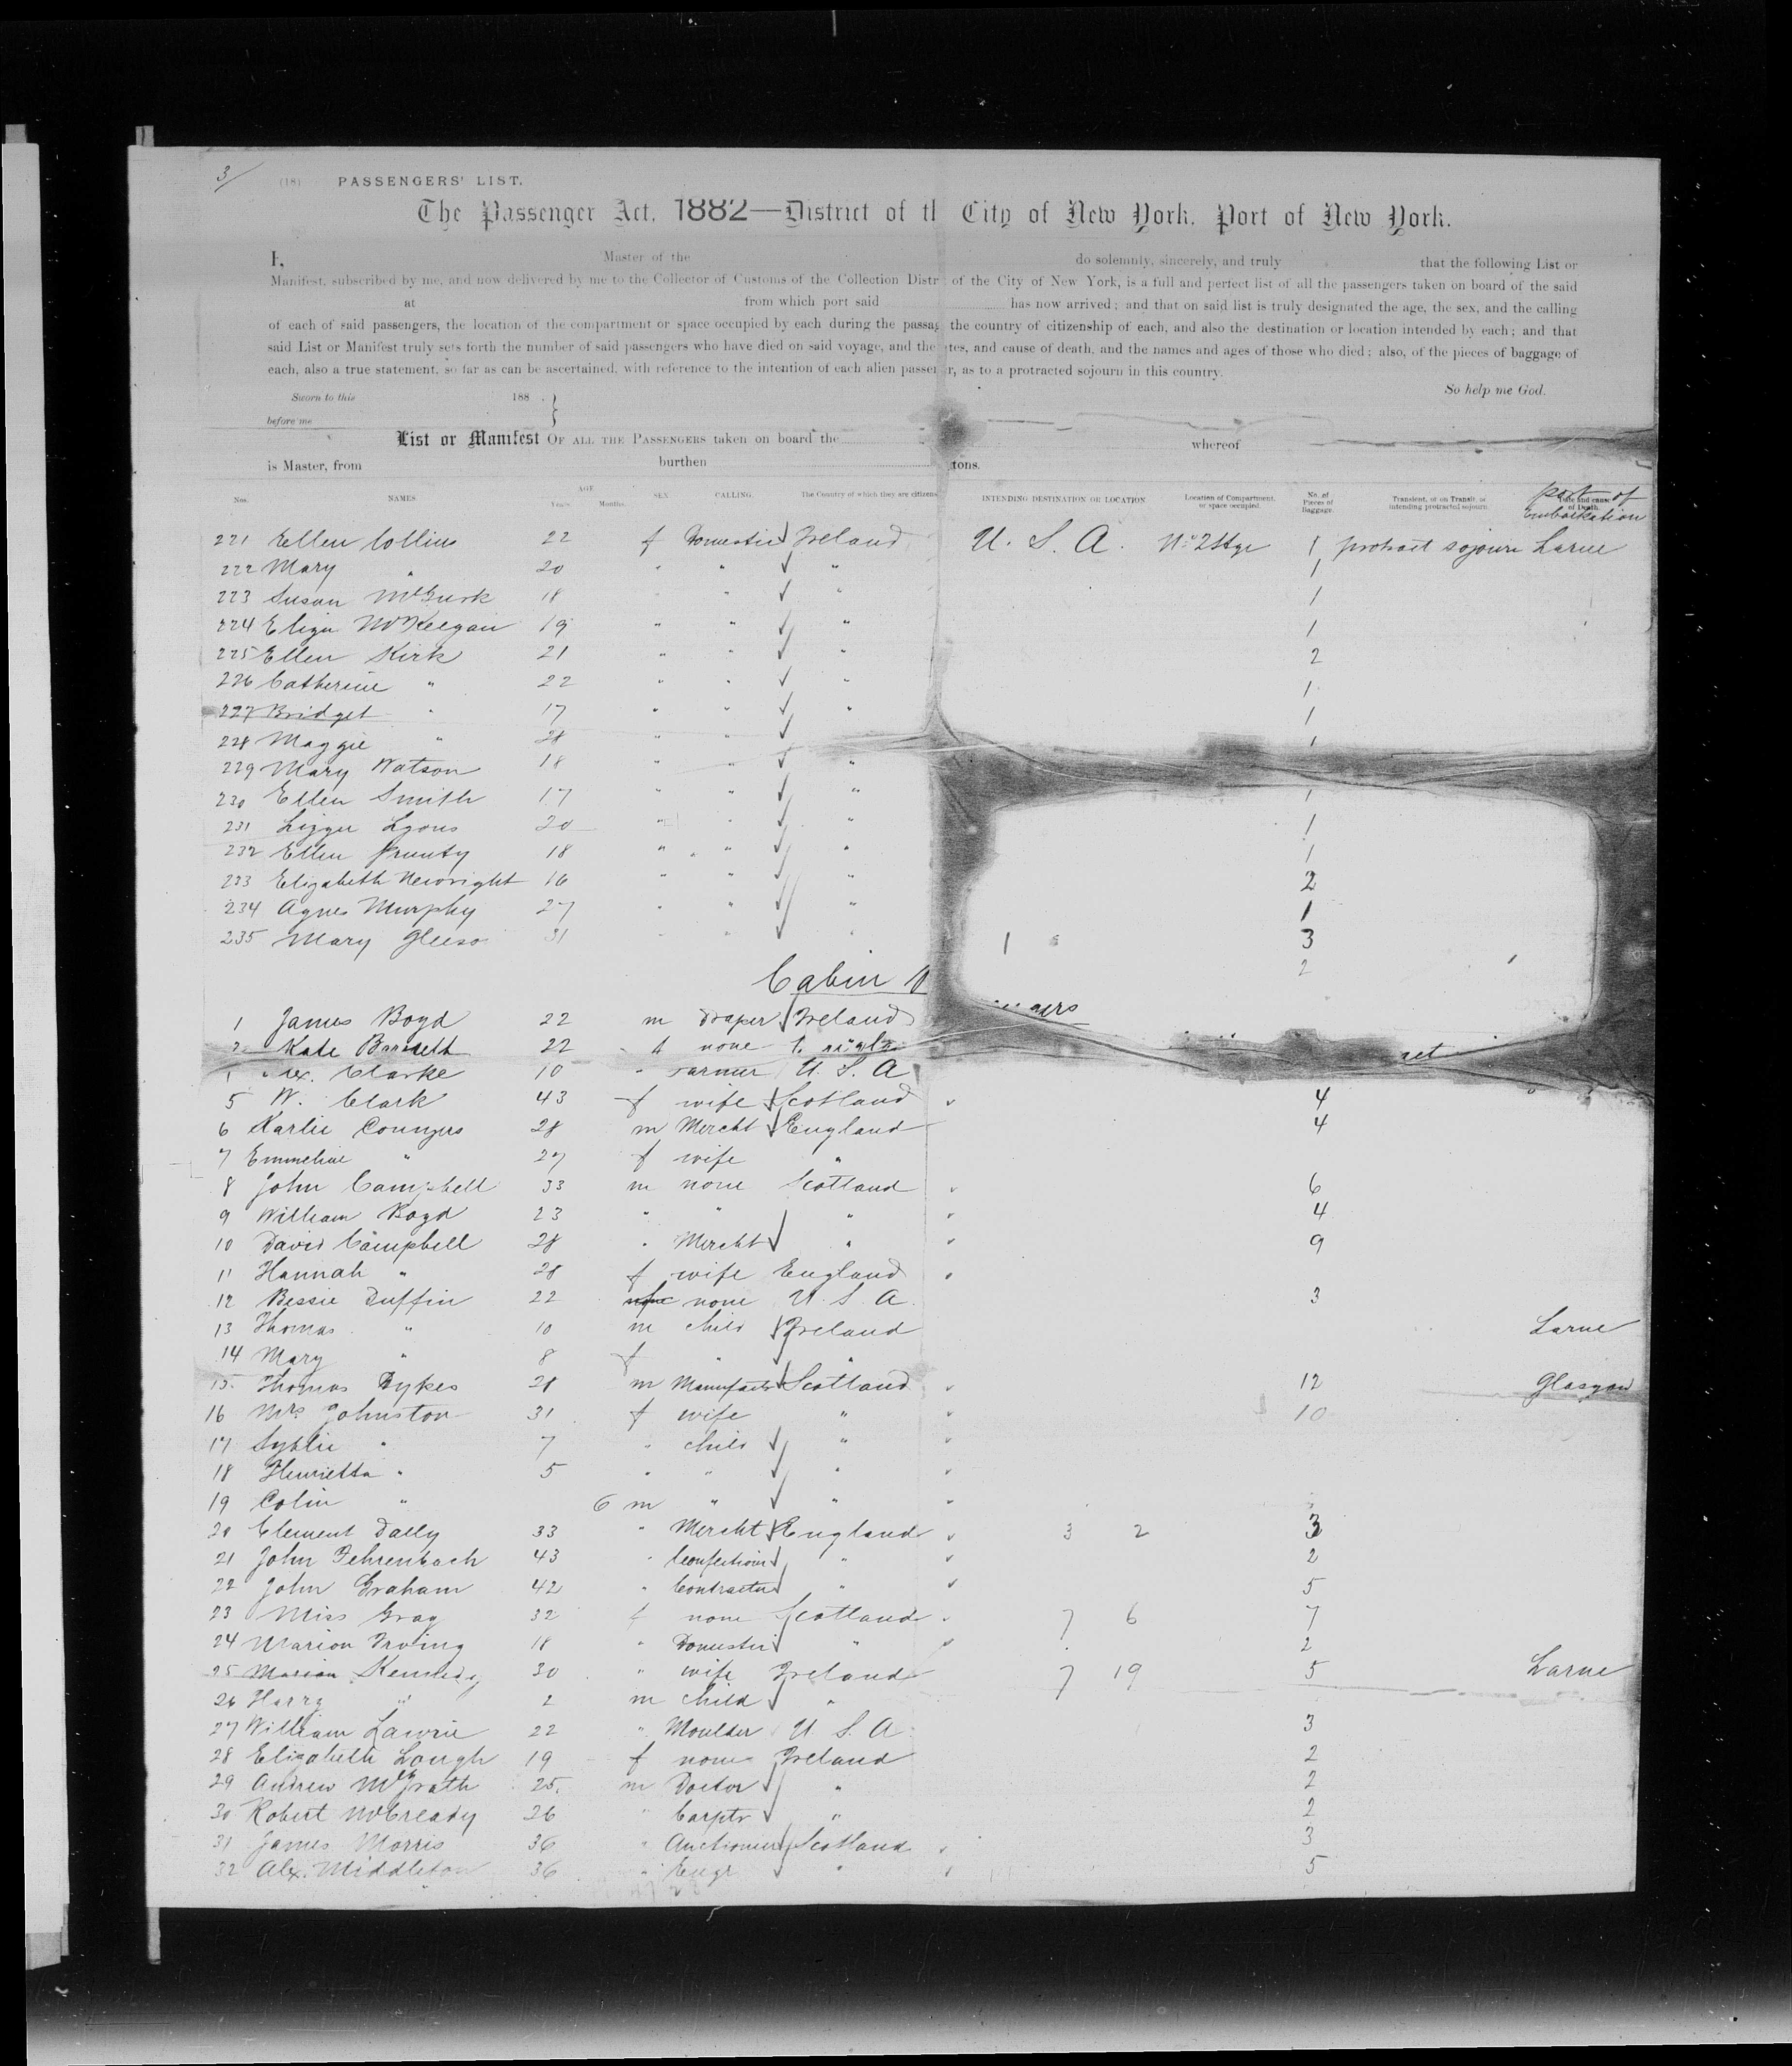 3/
(18) PASSENGERS' LIST.
The Passenger Act, 1882—District of th City of New York, Port of New York.
I, Master of the do solemnly, sincerely, and truly that the following List or
Manifest, subscribed by me, and now delivered by me to the Collector of Customs of the Collection Distr of the City of New York, is a full and perfect list of all the passengers taken on board of the said
at from which port said has now arrived; and that on said list is truly designated the age, the sex, and the calling
of each of said passengers, the location of the compartment or space occupied by each during the passag the country of citizenship of each, and also the destination or location intended by each; and that
said List or Manifest truly sets forth the number of said passengers who have died on said voyage, and the tes, and cause of death, and the names and ages of those who died; also, of the pieces of baggage of
each, also a true statement, so far as can be ascertained, with reference to the intention of each alien passer r, as to a protracted sojourn in this country.
So help me God.
Sworn to this 188 .
before me
List or Manifest OF ALL THE PASSENGERS taken on board the whereof
is Master, from burthen tons.
Nos. NAMES. AGE Years. Months. SEX. CALLING. The Country of which they are citizens INTENDING DESTINATION OR LOCATION Location of Compartment, or space occupied. No. of Pieces of Baggage. Transient, or on Transit, or intending protracted sojourn Date and cause of Death. Port of Embarkation
221 Ellen Collins 22 f Domestic Ireland U. S. A. No 2 Stge 1 protract sojourn Larne
222 Mary " 20 " " " 1
223 Susan McGurk 18 " " " 1
224 Eliza McKeegan 19 " " " 1
225 Ellen Kirk 21 " " " 2
226 Catherine " 22 " " " 1
227 Bridget " 17 " " " 1
228 Maggie " 28 " " 1
229 Mary Watson 18 " " "
230 Ellen Smith 17 " " " 1
231 Lizzie Lyons 20 " " " 1
232 Ellen Prunty 18 " " " 1
233 Elizabeth Newright 16 " " " 2
234 Agnes Murphy 27 " " " 1
235 Mary Gleeso 31 " " " 1 3
2
Cabin P ngers
1 James Boyd 22 m Draper Ireland
2 Kate Barnett 22 f none
Clarke 10 " Farmer U. S. A
5 W. Clark 43 f wife Scotland 4
6 Karlie Connyers 28 m Mercht England 4
7 Emmeline " 27 f wife "
8 John Campbell 33 m none Scotland 6
9 William Boyd 23 " " " 4
10 David Campbell 28 " Mercht " 9
11 Hannah " 28 f wife England
12 Bessie Duffin 22 none U. S. A. 3
13 Thomas " 10 m child Ireland Larne
14 Mary " 8 f " "
15 Thomas Dykes 28 m Manufactr Scotland 12 Glasgow
16 Mrs Johnston 31 f wife " 10
17 Syblie " 7 " child "
18 Henrietta " 5 " " "
19 Colin " 6 m " "
20 Clement Dally 33 " Mercht England 3 2 3
21 John Fehrenbach 43 " Confectionr " 2
22 John Graham 42 " Contractor " 5
23 Miss Gray 32 f none Scotland 7 6 7
24 Marion Irving 18 " Domestic " 2
25 Marian Kennedy 30 " wife Ireland 7 19 5 Larne
26 Harry " 2 m child "
27 William Lawrie 22 " Moulder U. S. A 3
28 Elizabeth Lough 19 f none Ireland 2
29 Andrew McGrath 25 m Doctor " 2
30 Robert McCready 26 " Carptr " 2
31 James Morris 36 " Auctioneer Scotland 3
32 Alex. Middleton 36 " Engr " 5